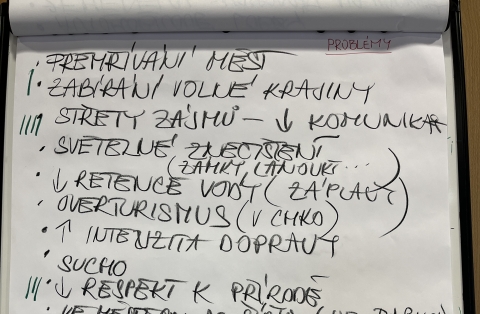 PROBLÉMY
• PŘEHŘÍVÁNÍ MĚST
• ZABÍRÁNÍ VOLNÉ KRAJINY
• STŘETY ZÁJMŮ – ↓ KOMUNIKA
• SVĚTELNÉ ZNEČIŠTĚNÍ
(ZÁMKY,
• ↓ RETENCE VODY (ZÁPLAVY)
• OVERTURISMUS (V CHKO)
• ↑ INTENZITA DOPRAVY
• SUCHO
• ↓ RESPEKT K PŘÍRODĚ